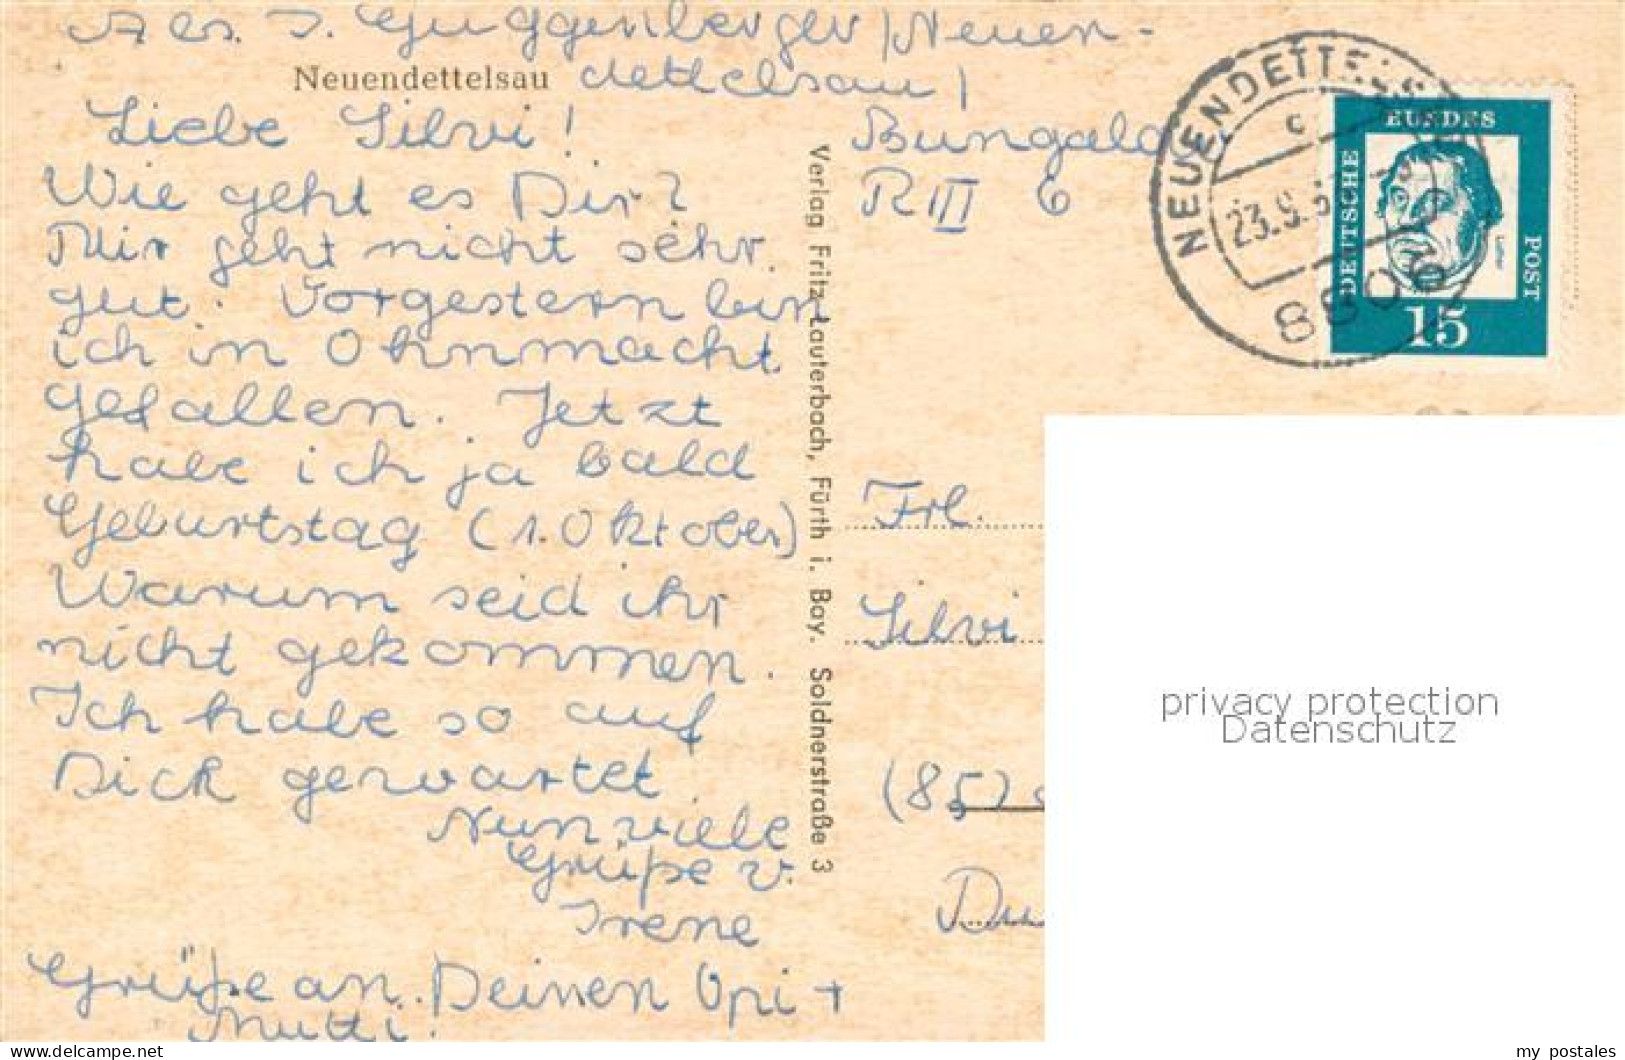 Abs. I. Guggenberger, Neuen-
dettelsau,
Bungalo
R III 6
Neuendettelsau
Liebe Silvi!
Wie geht es Dir?
Mir geht nicht sehr
gut. Vorgestern bin
ich in Ohnmacht
gefallen. Jetzt
habe ich ja bald
Geburtstag (1. Oktober)
Warum seid ihr
nicht gekommen.
Ich habe so auf
Dick gewartet
Nun viele
Grüße v.
Irene
Grüße an Deinen Opi +
Mutti!
Verlag Fritz Lauterbach, Fürth i. Bay. Soldnerstraße 3
NEUENDETTELSAU
c
23.9.
8806
DEUTSCHE
BUNDES
POST
Luther
15
Frl.
Silvi
(85)
privacy protection
Datenschutz
my postales
https://www.delcampe.net